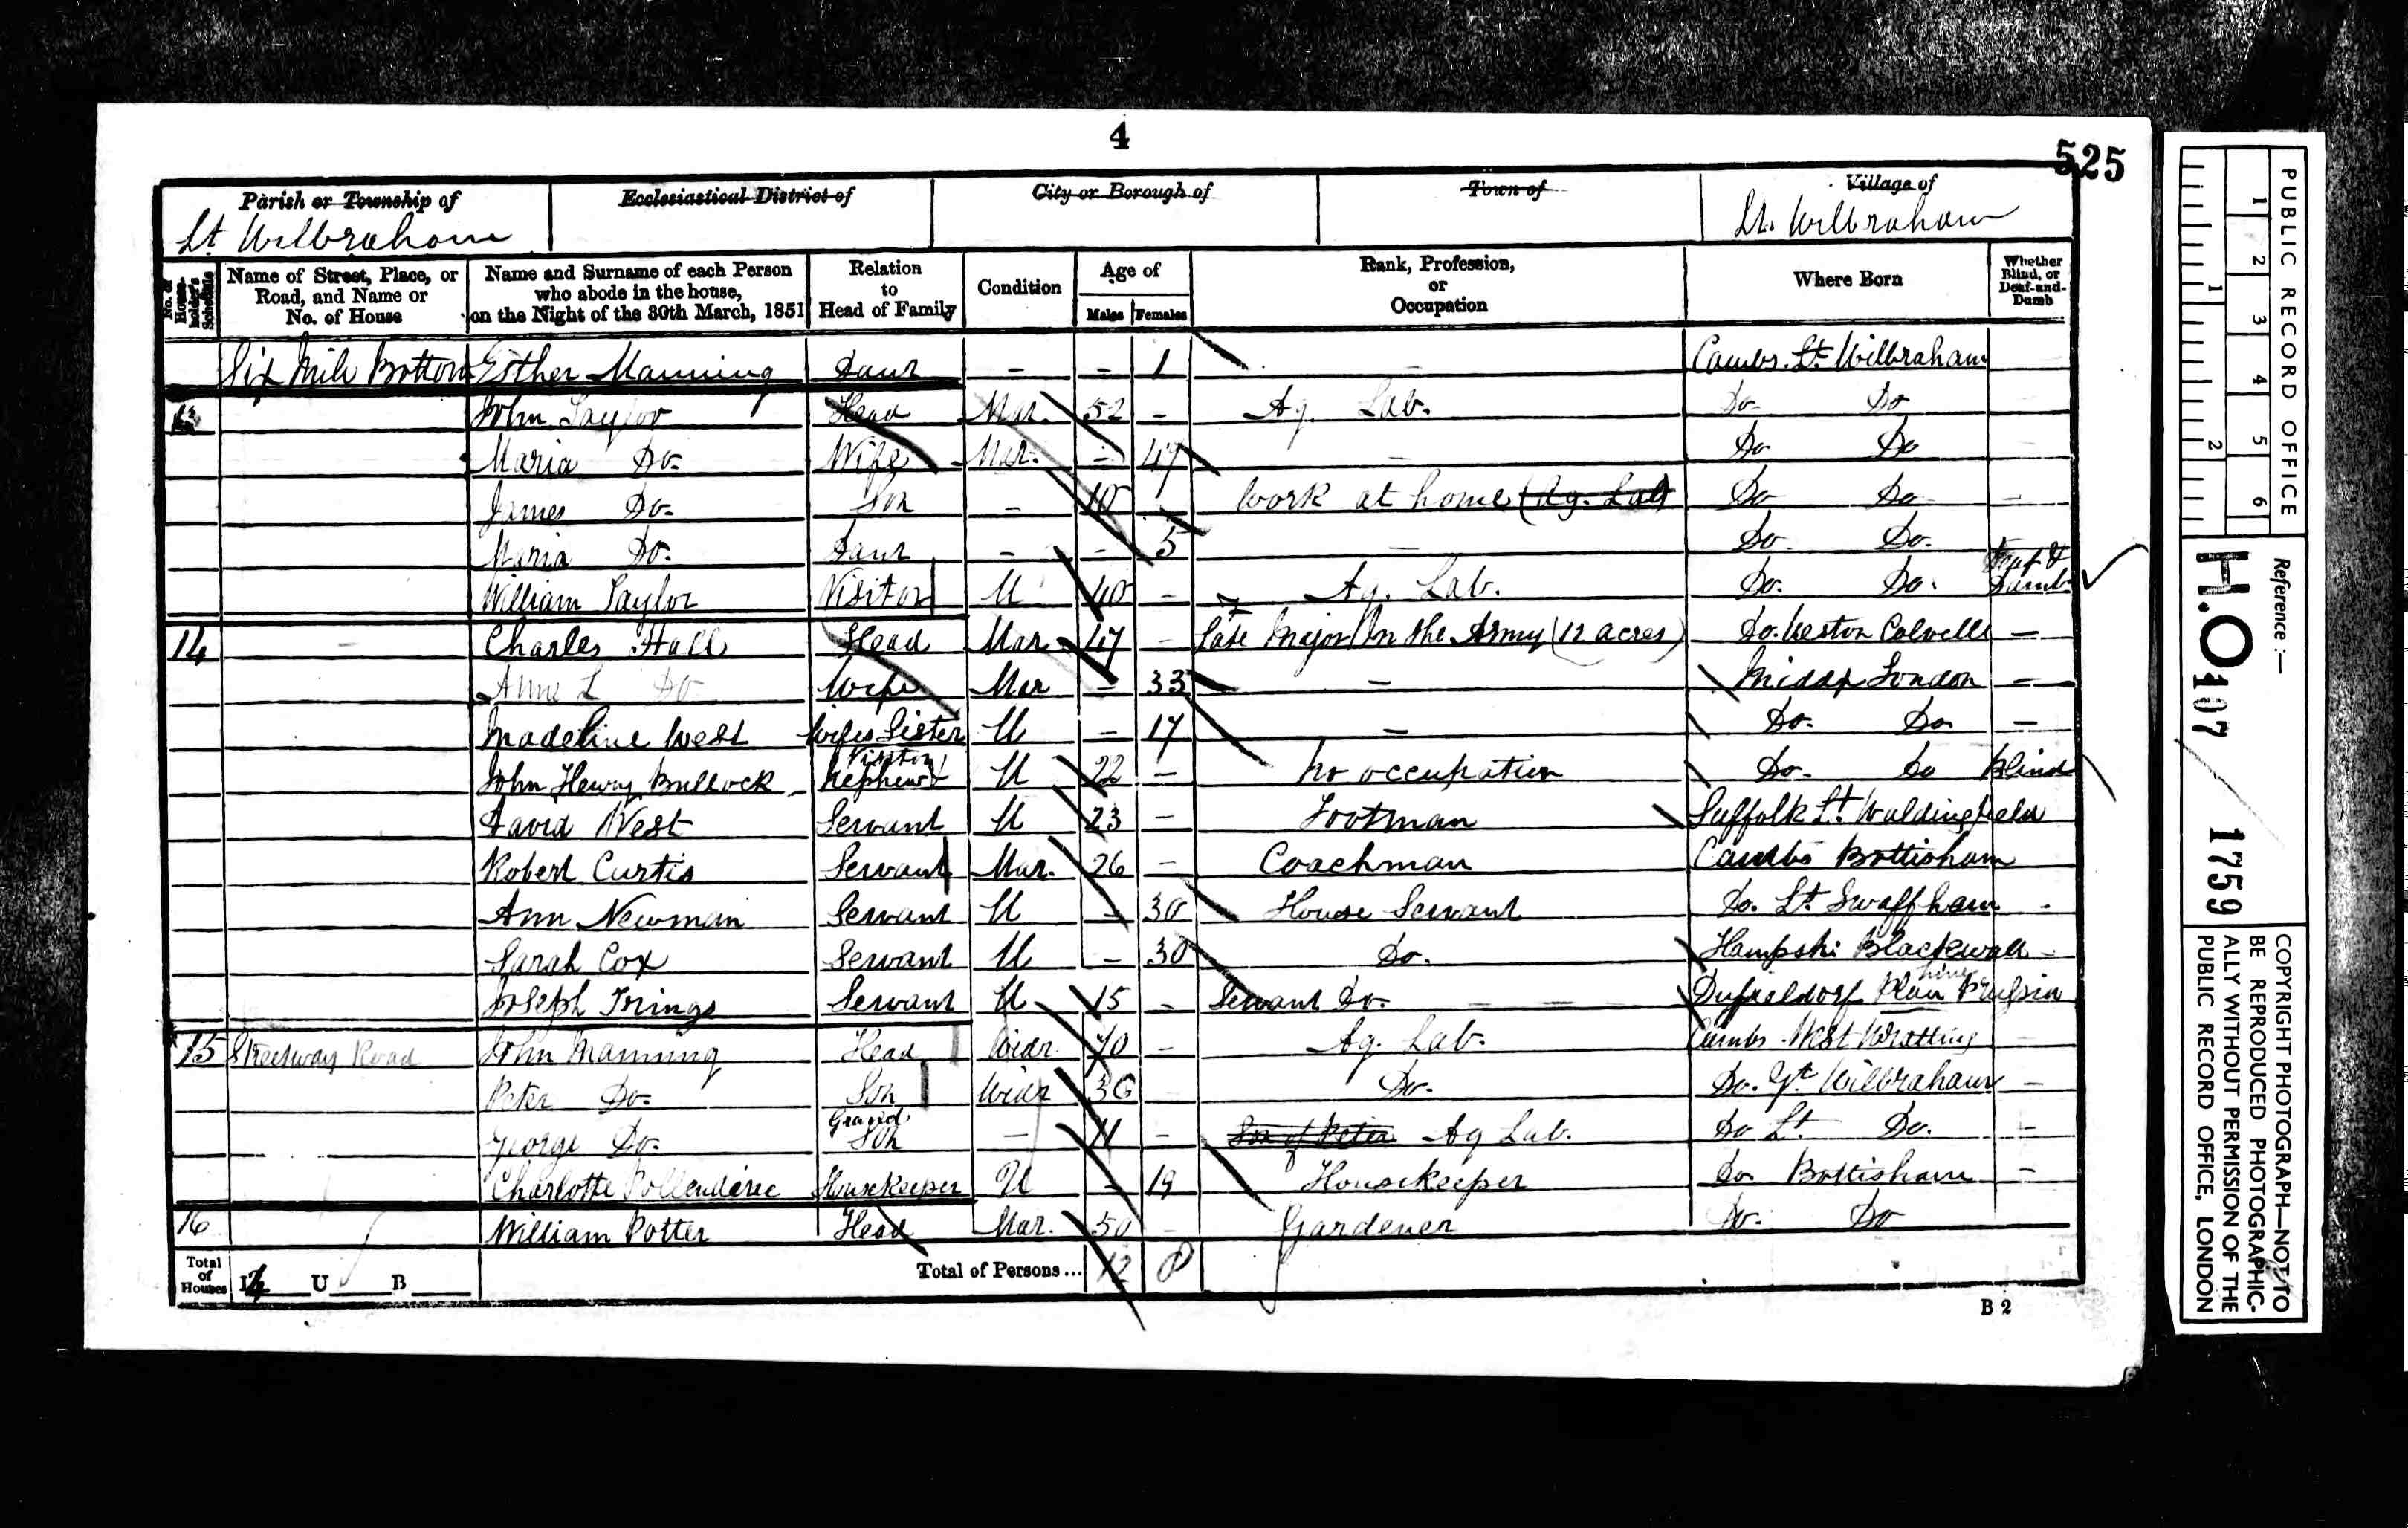 4
525
Parish or Township of
Ecclesiastical District of
City or Borough of
Town of
Village of
Lt. Wilbraham
Lt. Wilbraham
No. of House-holder's Schedule
Name of Street, Place, or Road, and Name or No. of House
Name and Surname of each Person who abode in the house, on the Night of the 30th March, 1851
Relation to Head of Family
Condition
Age of
Males Females
Rank, Profession, or Occupation
Where Born
Whether Blind, or Deaf-and-Dumb
Six Mile Bottom Esther Manning Daur - - 1 - Cambs. Lt. Wilbraham
13 John Taylor Head Mar. 52 - Ag. Lab. Do Do
Maria Do. Wife Mar. - 47 - Do Do
James Do. Son - 10 - Work at home (Ag. Lab) Do Do -
Maria Do. Daur - - 5 - Do. Do.
William Taylor Visitor U 40 - Ag. Lab. Do. Do. Deaf & Dumb
14 - Charles Hall Head Mar 47 - Late Major in the Army (12 acres) Do. Weston Colvelle -
Anne L Do Wife Mar - 33 - Middx London -
Madeline West Wifes Sister U - 17 - Do. Do. -
John Henry Bullock Nephew Visitor U 22 - No occupation Do. Do Blind
David West Servant U 23 - Footman Suffolk Lt. Waldingfield
Robert Curtis Servant Mar. 26 - Coachman Cambs Bottisham
Ann Newman Servant U - 30 House Servant Do. Lt. Swaffham -
Sarah Cox Servant U - 30 Do. Hampshi Blackwall -
Joseph Trings Servant U 15 - Servant Do. - - - Prussia
15 Streetway Road John Manning Head Widr. 70 - Ag. Lab. Cambs West Wratting -
Peter Do. Son Widr 36 - Do. Do. Gt. Wilbraham -
George Do. Grand Son - 11 - Son of Peter Ag Lab. Do Lt. Do. -
Charlotte Housekeeper U - 19 Housekeeper Do Bottisham -
16 William Potter Head Mar. 50 - Gardener Do. Do
Total of Houses I U B Total of Persons... 12 8
B 2
PUBLIC RECORD OFFICE
1 2 3 4 5 6
1 2
Reference :-
H.O. 107 / 1759
COPYRIGHT PHOTOGRAPH—NOT TO BE REPRODUCED PHOTOGRAPHICALLY WITHOUT PERMISSION OF THE PUBLIC RECORD OFFICE, LONDON